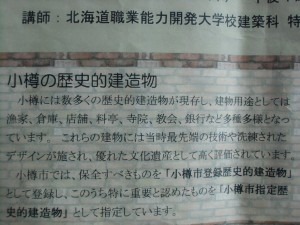 講師：北海道職業能力開発大学校建築科 特
小樽の歴史的建造物
小樽には数多くの歴史的建造物が現存し、建物用途としては
漁家、倉庫、店舗、料亭、寺院、教会、銀行など多種多様となっ
ています。 これらの建物には当時最先端の技術や洗練された
デザインが施され、優れた文化遺産として高く評価されています
小樽市では、保全すべきものを「小樽市登録歴史的建造物」
として登録し、このうち特に重要と認めたものを「小樽市指定歴
史的建造物」として指定しています。